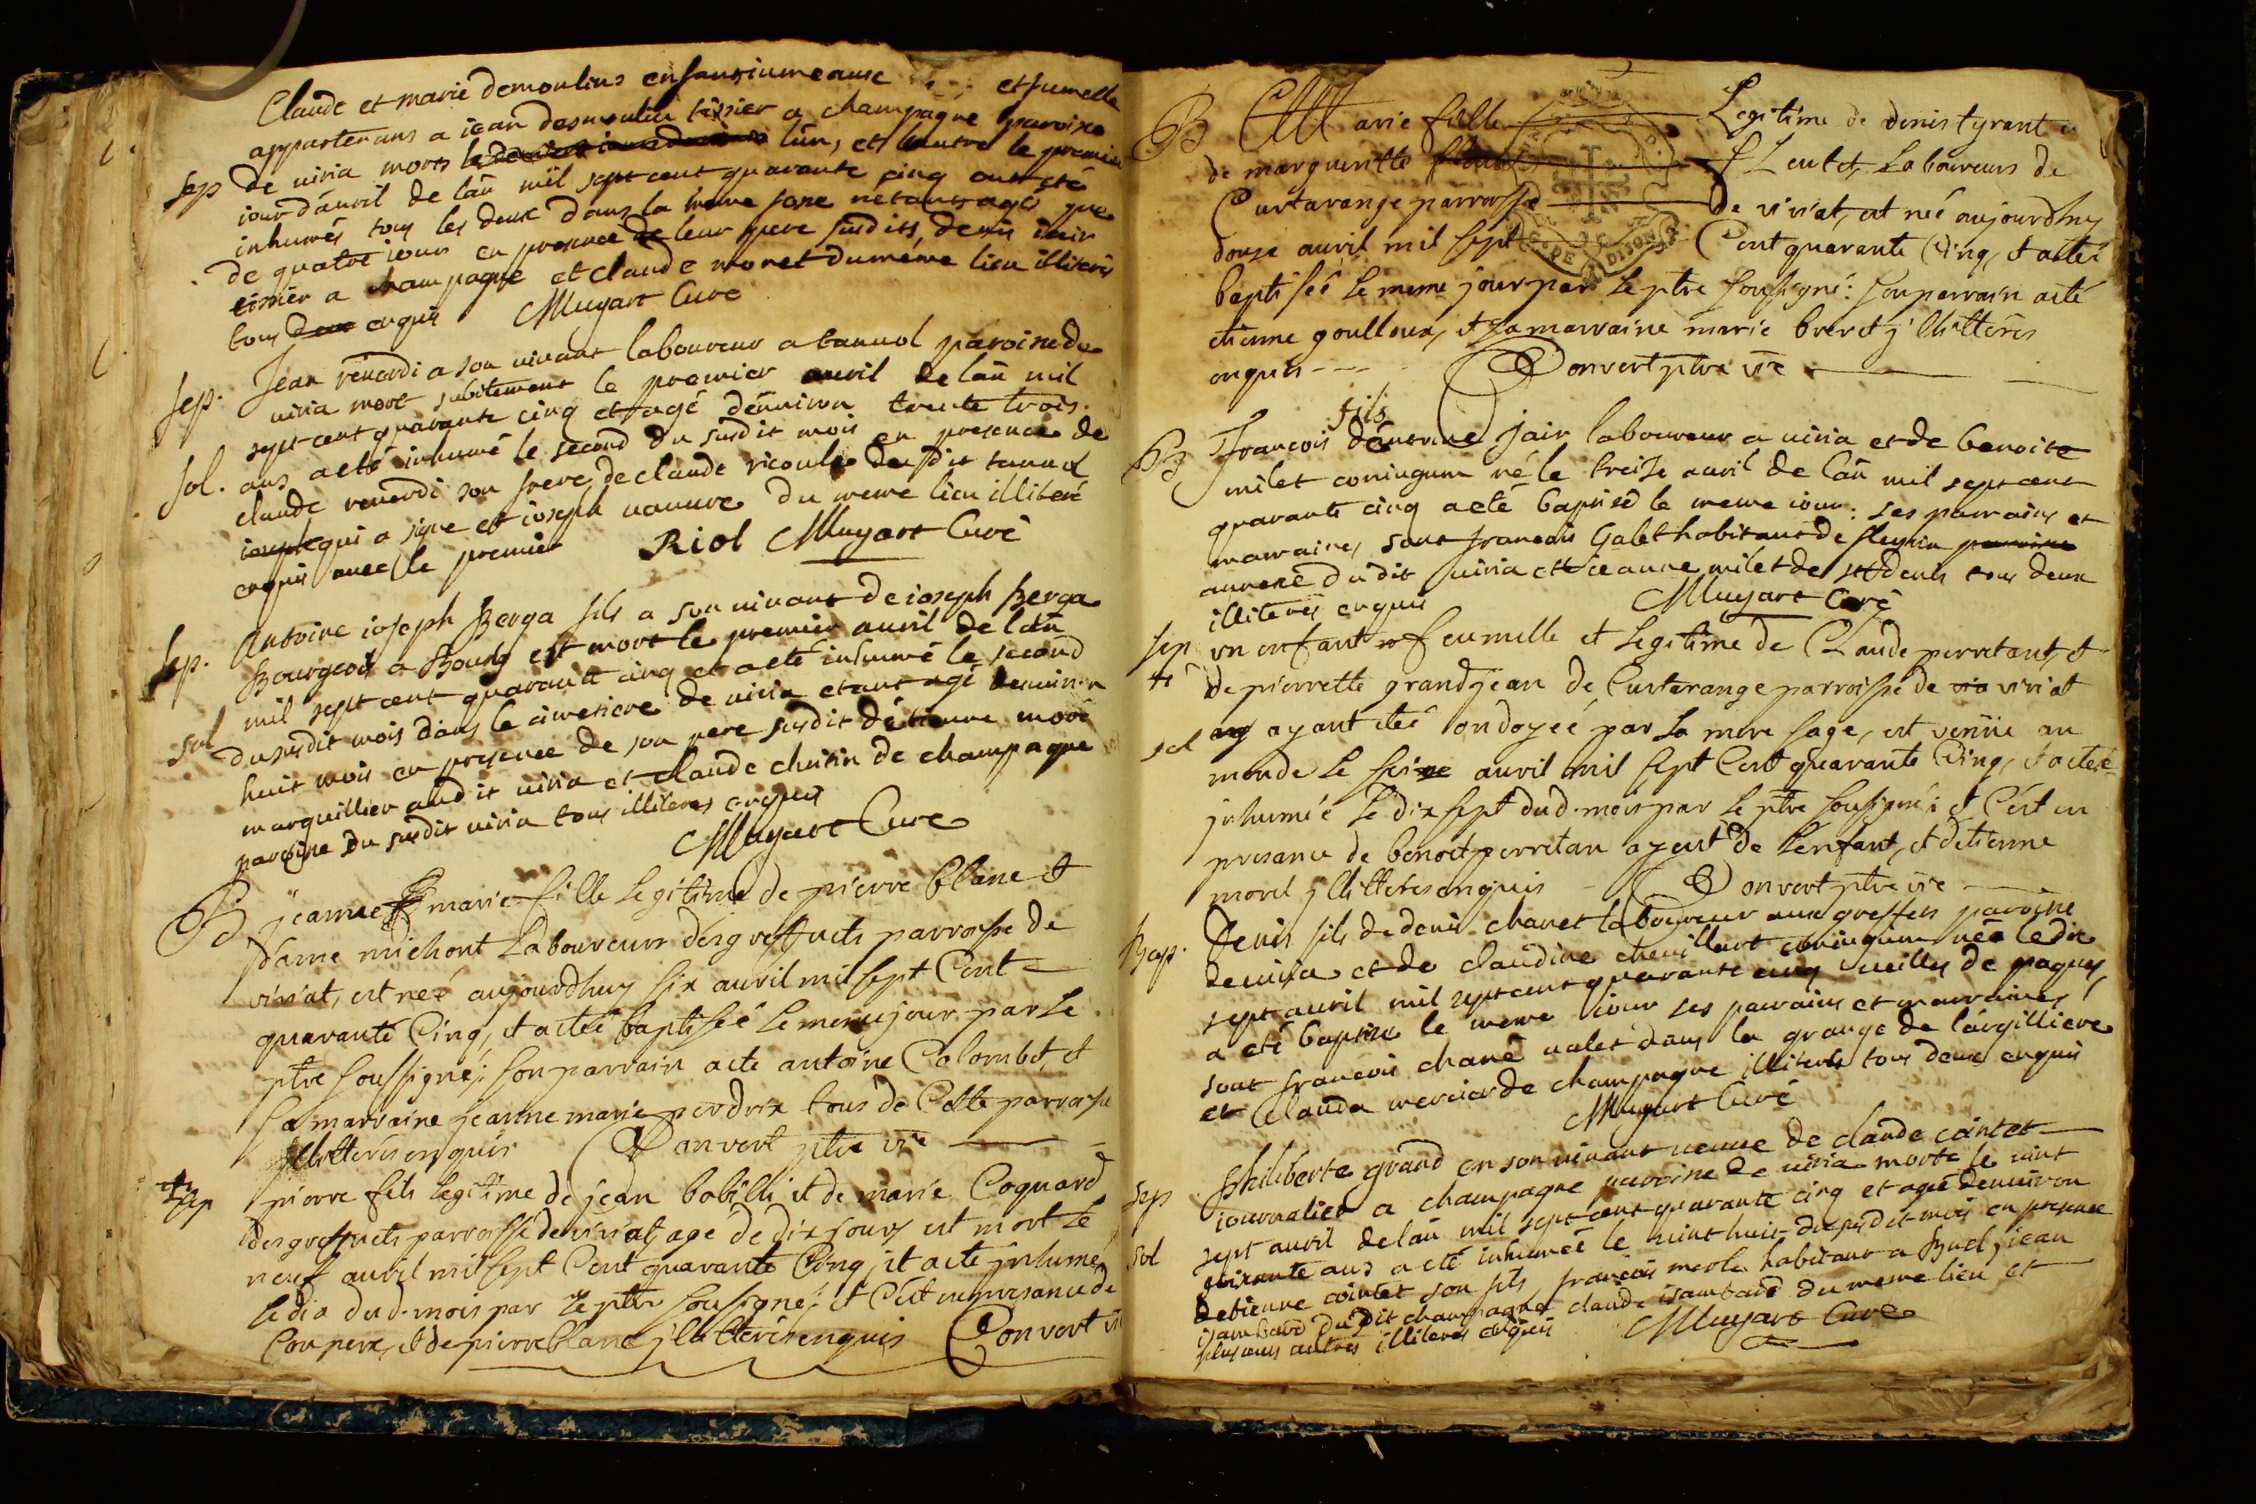 Claude et marie demoulins enfans iumeaux et iumelle
appartenans a iean desmoulin tissier a champagne paroise
sep de viria morts l'un, et l'autre le premier
iour d'auril de l'an mil sept cent quarante cinq ont été
inhumés tous les deux dans la meme fosse n'etant agés que
de quatre iours en presence de leur pere susdits, denis
tissier a champagne et claude monet du même lieu illiterés
tous enquis Mugart Curé
sep. Jean renardi a son vivant laboureur a tannol paroise de
viria mort subitement le premier auril de l'an mil
sept cent quarante cinq et agé d'enuiron trente trois
sol. ans a eté inhumé le second du susdit mois en presence de
claude renardi son frere, de claude ricoulr du dit tannol
qui a signé et ioseph nanure du meme lieu illiteré
enquis avec le premier Riol Mugart Curé
sep. Antoine ioseph Berga fils a son vivant de ioseph Berga
Bourgeois a Bourg est mort le premier auril de l'an
mil sept cent quarante cinq et a eté inhumé le second
sol du susdit mois dans le cimetiere de viria etant agé d'enuiron
huit mois en presence de son pere susdit d'etienne morel
marguillier au dit viria et claude chuitin de champagne
paroisse du susdit viria tous illiteres enquis
Mugart Cure
B jeanne marie fille legitime de pierre blanc et
d'anne michont Laboureurs des greffets parroisse de
viriat, est neé aujourd'huy six auril mil sept Cent
quarante Cinq, et a eteé baptiseé le meme jour par le
ptre soussigné: son parrain a ete antoine Colombet, et
sa marraine jeanne marie perdrix tous de Cette parroisse
illitteris enquis Convert ptre vre
sep pierre fils legitime de jean bobilli et de marie Coquard
des greffets parroisse de viriat, age de dix jours est mort le
neuf auril mil sept Cent quarante Cinq, et a ete inhumé
le dix dud. mois par le ptre soussigné; et C'est en presance de
son pere, et de pierre blanc illitteris enquis Convert vre
B Marie fille Legitime de denis tyrant et
de margueritte fLeutet, Laboureurs de
Curtarange parroisse de viriat, est neé aujourdhuy
douze auril mil sept Cent quarante Cinq, et a eteé
baptiseé le meme jour par le ptre soussigné: son parrain a eté
etienne goulloux, et sa marraine marie brevet illitteris
enquis Convert ptre vre
fils
B Francois d'antoine jair laboureur a viria et de benoite
milet coniugum né le treize auril de l'an mil sept cent
quarante cinq a eté baptisé le meme iour: ses parrains et
marraines sont francois Galet habitant de fleyria
annexe du dit viria et ieanne milet de st denis tous deux
illiterés enquis Mugart Curé
sep un enfant fеumelle et legitime de Claude perretant, et
de pierrette grandjean de Curtarange parroisse de viriat
sol ayant eteé ondoyeé par la mere sage, est venüe au
monde le seize auril mil sept Cent quarante Cinq, et a eteé
inhumeé le dix sept dud. mois par le ptre soussigné; et C'est en
presance de benoit perretan ayeut de l'enfant, et d'etienne
morel illitteres enquis Convert ptre vre
Bap. Denis fils de denis chanet laboureur aux greffets paroisse
de viria et de claudine cheuillart coniugum né le dix
sept auril mil sept cent quarante cinq veilles de paques,
a eté baptisé le meme iour ses parrains et marraines
sont francois chané valet dans la grange de l'argilliere
et Clauda mercier de champagne illiterés tous deux enquis
Mugart Curé
sep Philiberte grand en son vivant veuve de claude cointet
iournalier a champagne paroise de viria morte le vint
sol sept auril de l'an mil sept cent quarante cinq et ageé d'enuiron
soixante ans a eté inhumeé le vint huit du susdit mois en presence
d'etienne cointet son fils francois merle habitant a Bud, iean
isambard du dit champagne claude isambard du meme lieu et
plusieurs autres illiteres enquis Mugart Cure